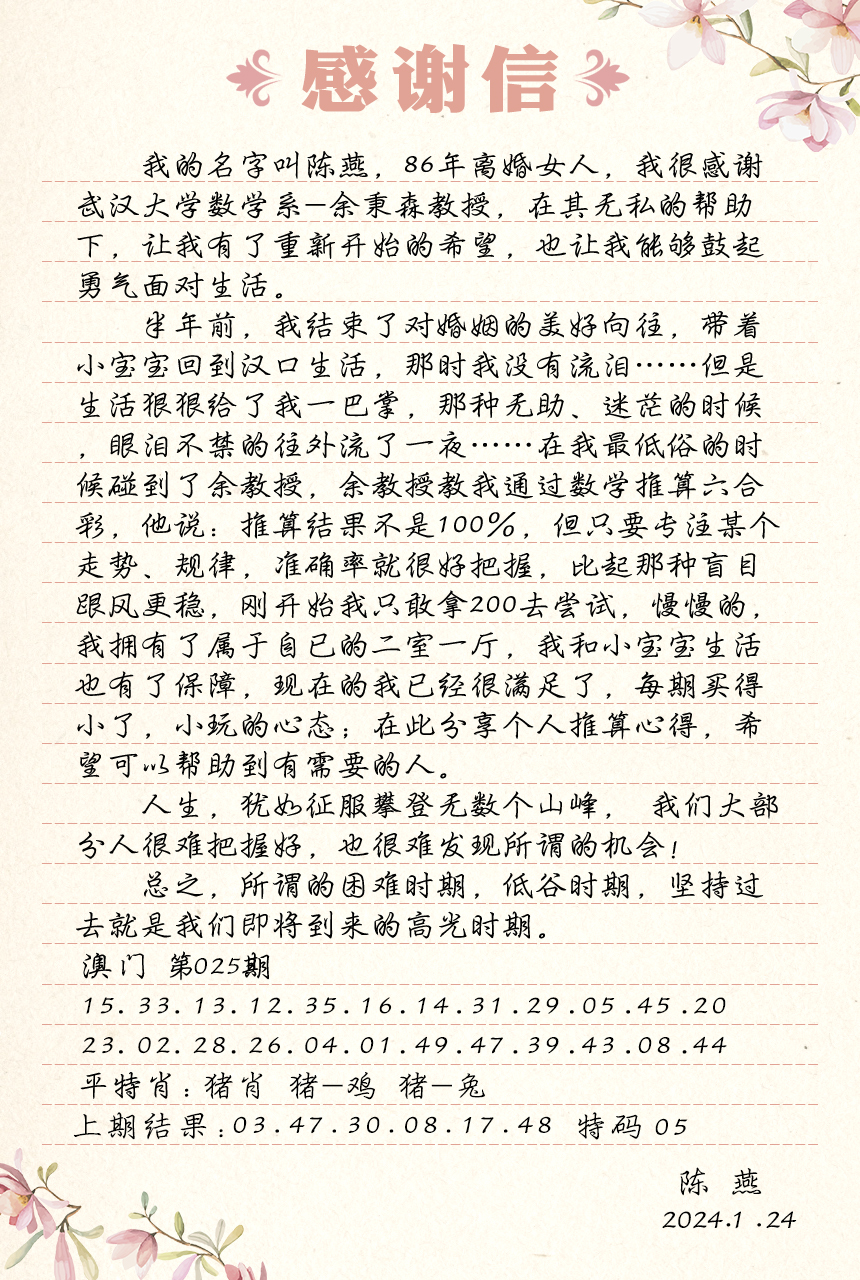 感谢信
我的名字叫陈燕，86年离婚女人，我很感谢
武汉大学数学系—余秉森教授，在其无私的帮助
下，让我有了重新开始的希望，也让我能够鼓起
勇气面对生活。
半年前，我结束了对婚姻的美好向往，带着
小宝宝回到汉口生活，那时我没有流泪……但是
生活狠狠给了我一巴掌，那种无助、迷茫的时候
，眼泪不禁的往外流了一夜……在我最低俗的时
候碰到了余教授，余教授教我通过数学推算六合
彩，他说：推算结果不是100%，但只要专注某个
走势、规律，准确率就很好把握，比起那种盲目
跟风更稳，刚开始我只敢拿200去尝试，慢慢的，
我拥有了属于自已的二室一厅，我和小宝宝生活
也有了保障，现在的我已经很满足了，每期买得
小了，小玩的心态；在此分享个人推算心得，希
望可以帮助到有需要的人。
人生，犹如征服攀登无数个山峰， 我们大部
分人很难把握好，也很难发现所谓的机会！
总之，所谓的困难时期，低谷时期，坚持过
去就是我们即将到来的高光时期。
澳门 第025期
15.33.13.12.35.16.14.31.29.05.45.20
23.02.28.26.04.01.49.47.39.43.08.44
平特肖：猪肖 猪—鸡 猪—兔
上期结果：03.47.30.08.17.48 特码 05
陈 燕
2024.1.24